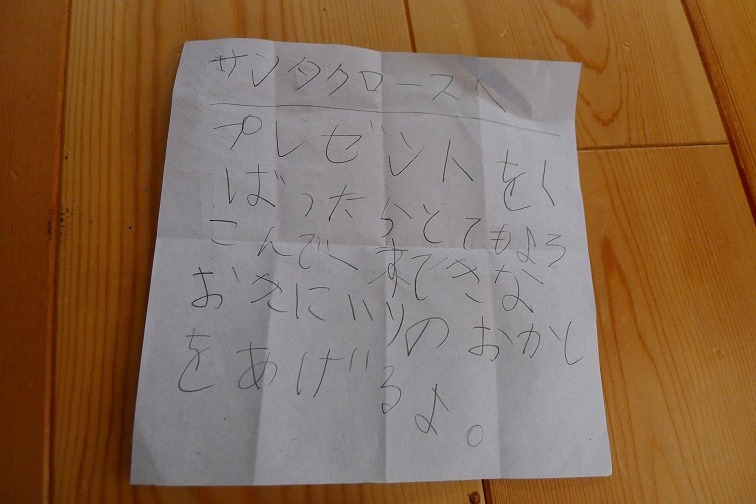 サンタクロースへ
プレゼントをく
ばったらとてもよろ
こんで、すてきな
おきにいりのおかし
をあげるよ。